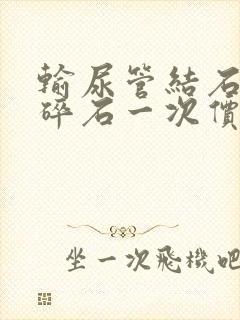 輸尿管結石
碎石一次價
坐一次飛機吧